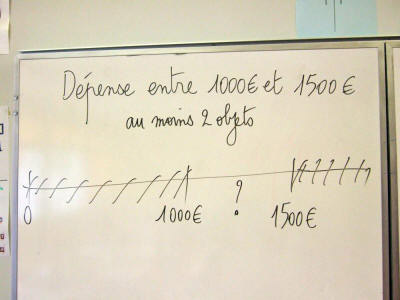 Dépense entre 1000€ et 1500€
au moins 2 objets
?
0 1000€ 1500€